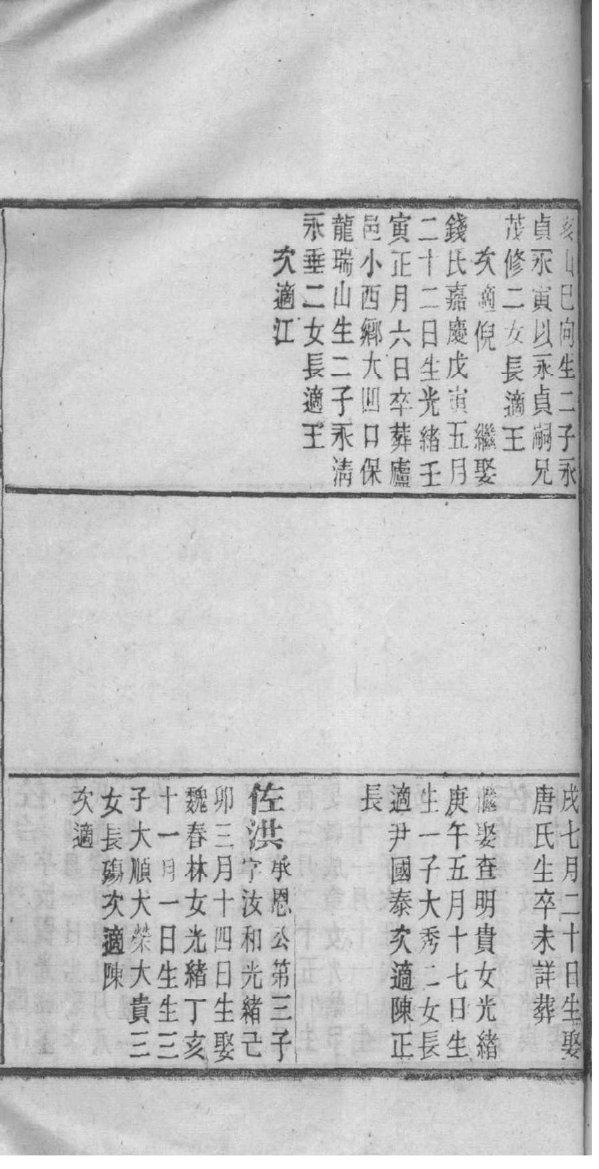 亥山巳向生二子永
貞永寅以永貞嗣兄
茂修二女長適王
次適倪　繼娶
錢氏嘉慶戊寅五月
二十二日生光緒壬
寅正月六日卒葬廬
邑小西鄉大凹口保
龍瑞山生二子永清
永垂二女長適王
次適江
戌七月二十日生娶
唐氏生卒未詳葬
繼娶查明貴女光緒
庚午五月十七日生
生一子大秀二女長
適尹國泰次適陳正
長
佐洪承恩公第三子
字汝和光緒己
卯三月十四日生娶
魏春林女光緒丁亥
十一月一日生生三
子大順大榮大貴三
女長殤次適陳
次適